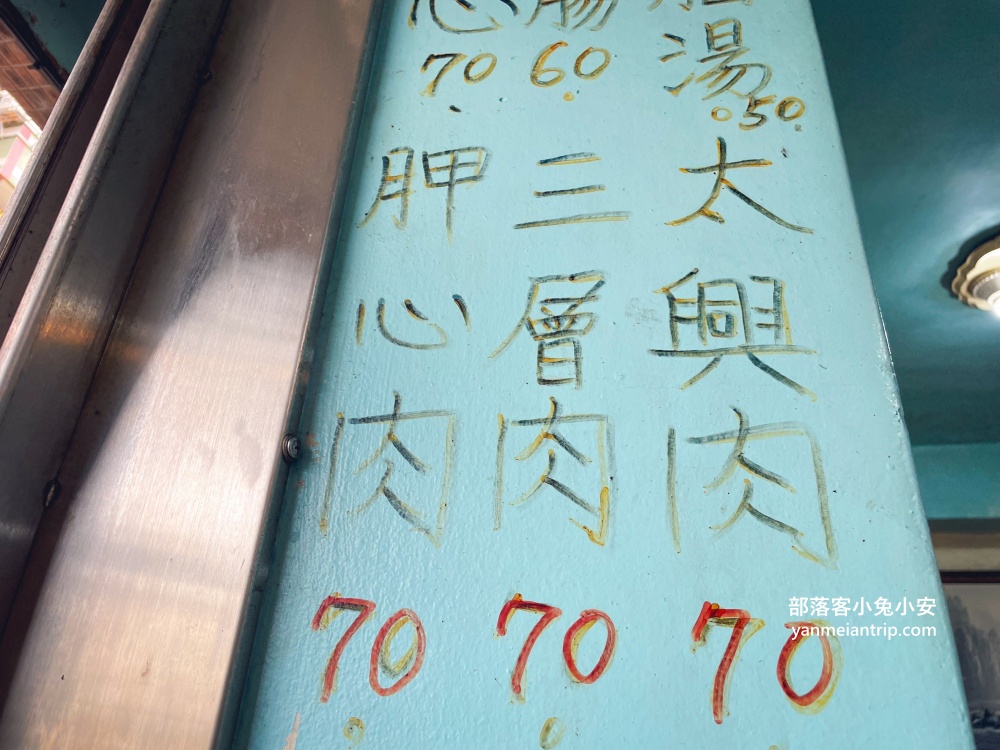 湯
50
腸
60
70
太興肉
70
三層肉
70
胛心肉
70
部落客小兔小安
yanmeiantrip.com